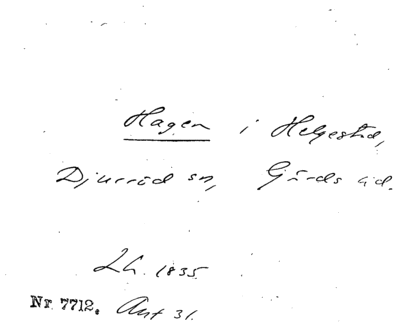 Hagen i Helgestad,
Djurröd sn, Gärds hd.
Lh. 1835
Nr 7712. Ant 31.